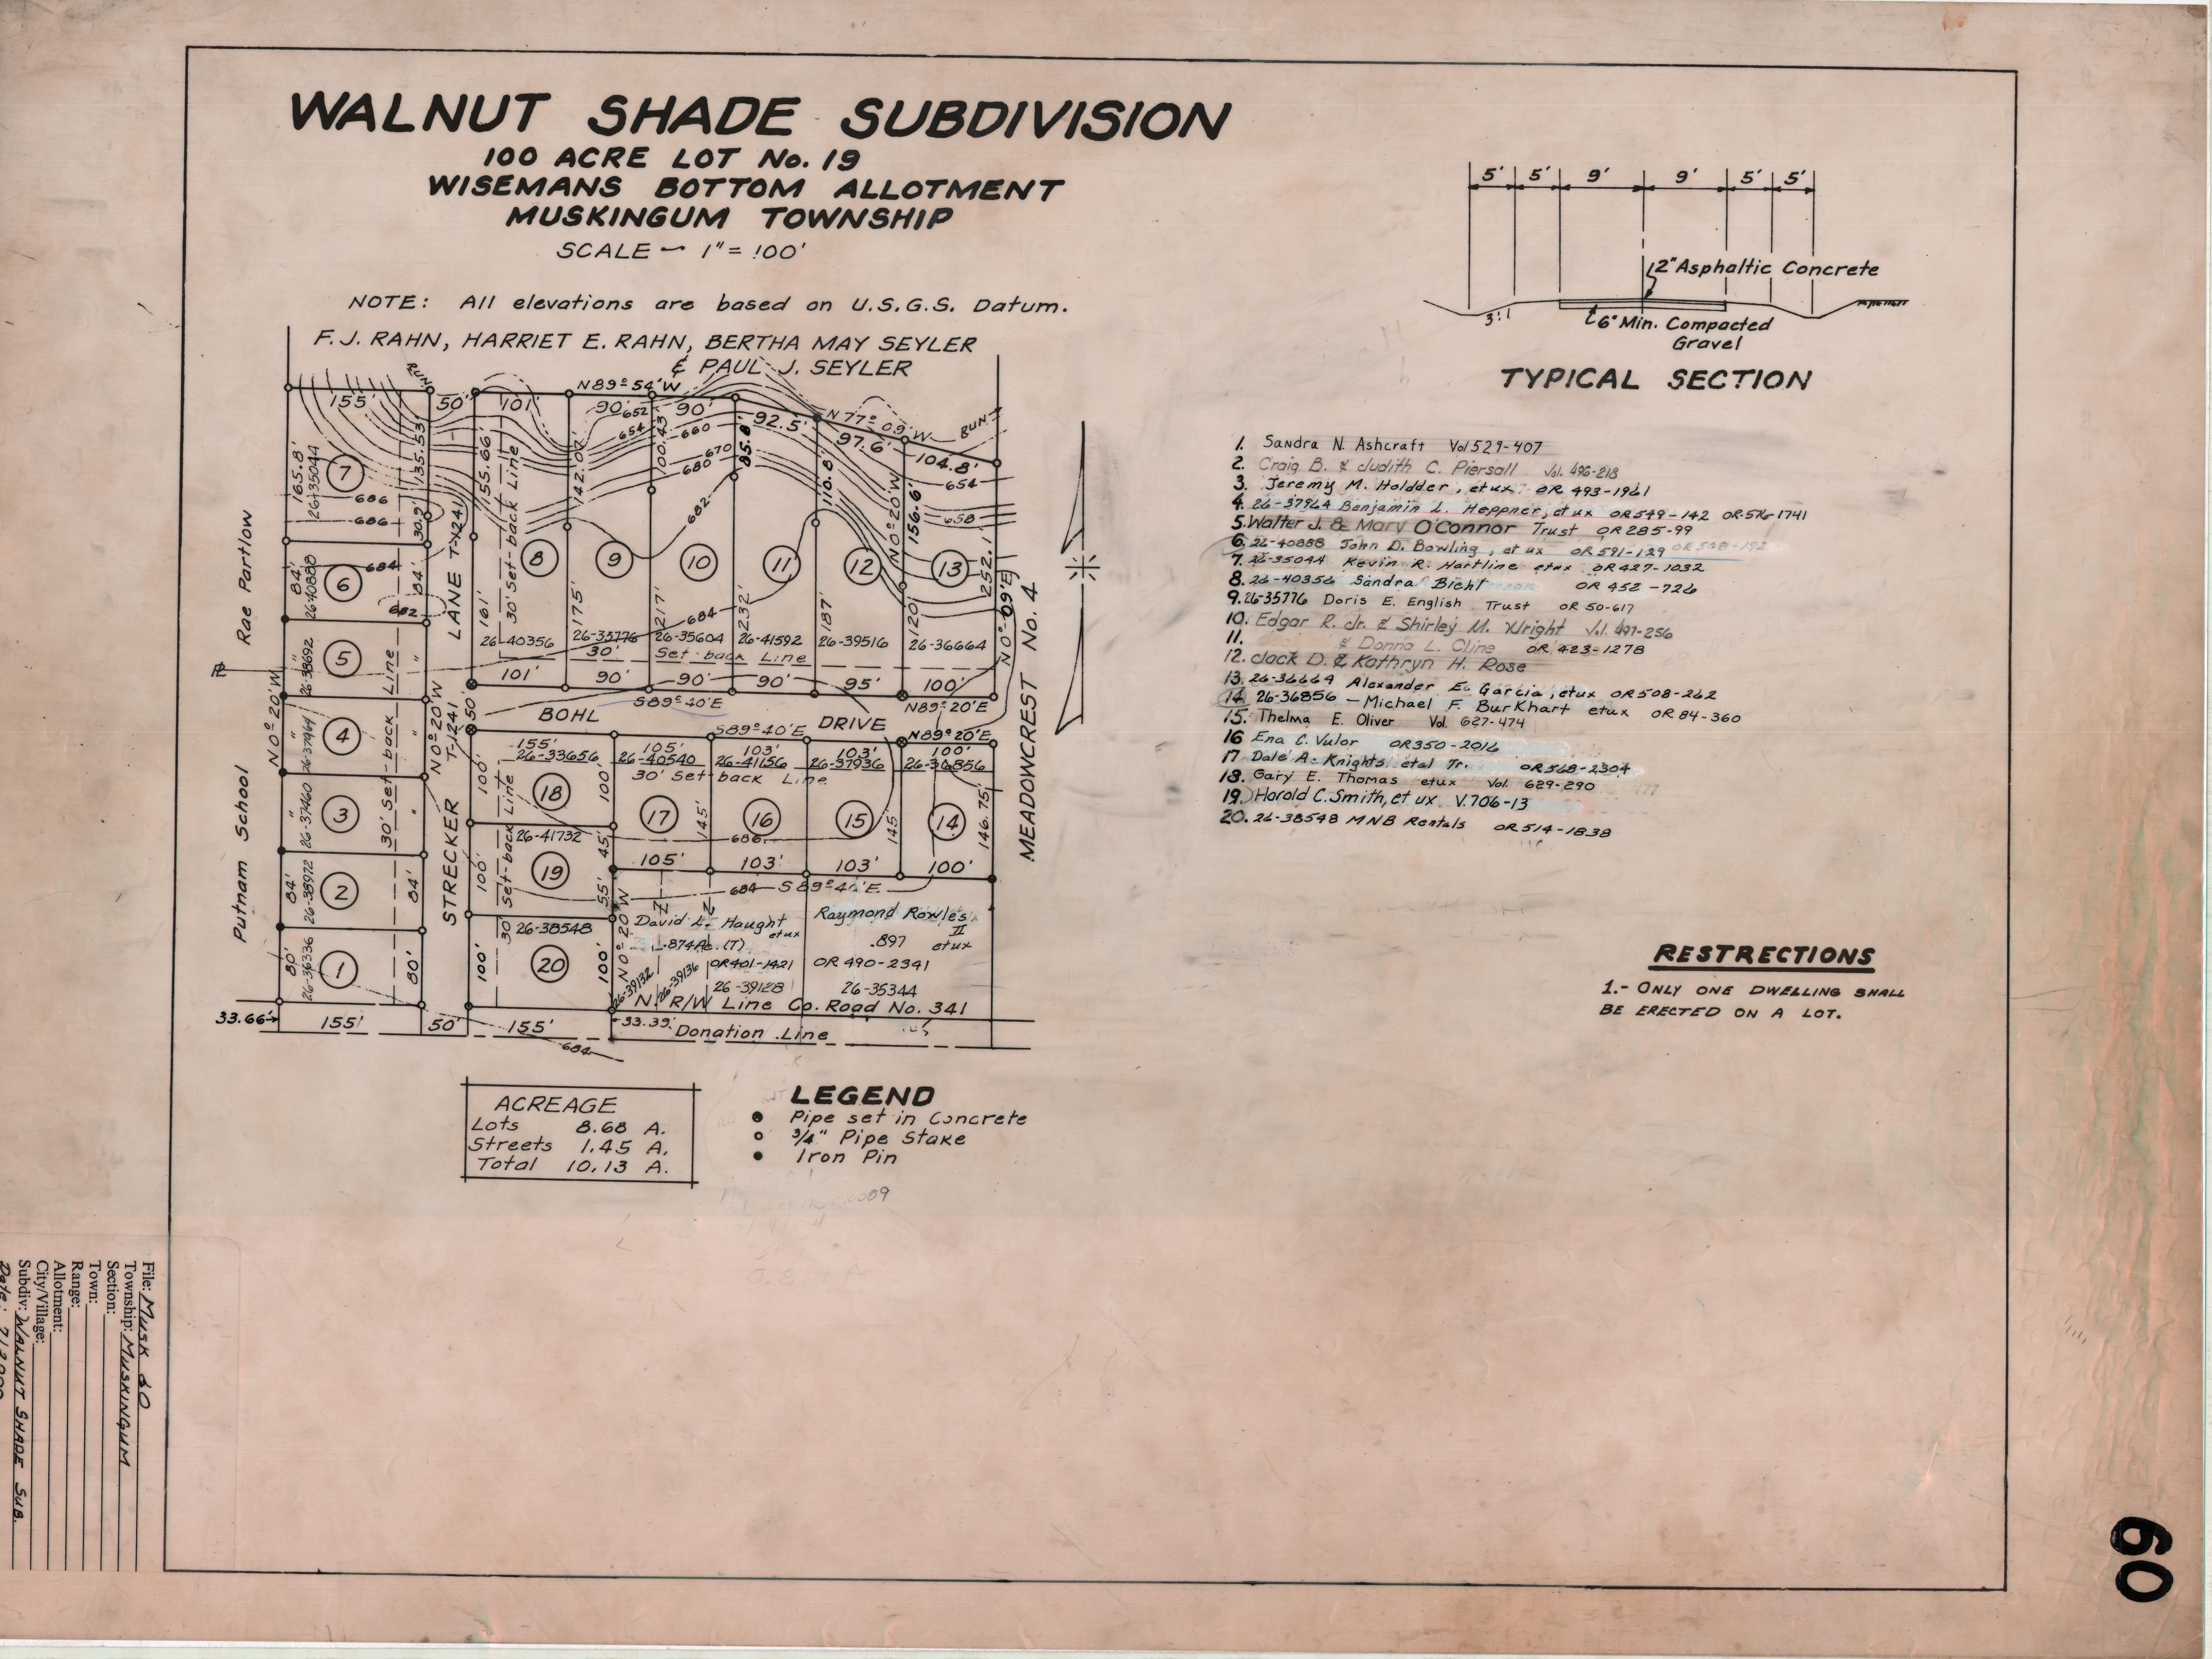 WALNUT SHADE SUBDIVISION
100 ACRE LOT No. 19
WISEMANS BOTTOM ALLOTMENT
MUSKINGUM TOWNSHIP
SCALE ~ 1" = 100'
NOTE: All elevations are based on U.S.G.S. Datum.
F.J. RAHN, HARRIET E. RAHN, BERTHA MAY SEYLER
& PAUL J. SEYLER
RUN
N 89° 54' W
155' 50' 101' 90' 90' 92.5' 97.6' 104.8'
N 77° 09' W
RUN
652 654 660 670 680 682 654 658
165.8' 135.53' 155.66' 142.07' 100.43' 85.8' 110.8' 156.6' 252.1'
26-35044
7
686
686
30.9'
N 0° 20' W
N 0° 09' E
8 9 10 11 12 13
161' 175' 217' 232' 187' 120'
30' Set-back Line
684
26-40356 26-35776 26-35604 26-41592 26-39516 26-36664
30' Set-back Line
101' 90' 90' 90' 95' 100'
S89° 40' E
N89° 20' E
BOHL DRIVE
50'
S89° 40' E
N89° 20' E
Rae Partlow
Putnam School
LANE T-1241
STRECKER
T-1241
N 0° 20' W
N 0° 20' W
MEADOWCREST No. 4
84' 26-40888 6 684 84'
682
" 26-38692 5 "
" 4 "
" 26-37460 3 "
84' 26-38972 2 84'
80' 26-36336 1 80'
30' Set-back Line
155' 105' 103' 103' 100'
26-33656 26-40540 26-41156 26-37936 26-36856
30' Set-back Line
100' 18 100' 17 145' 16 15 145' 14 146.75'
686
26-41732 45'
105' 103' 103' 100'
100' 19 55'
30' Set-back Line
684 S 89° 40' E
26-38548
100' 20 100'
N 0° 20' W
David L. Haught
etux
.874Ac. (T)
OR401-1421
26-39132 26-39136 26-39128
Raymond Rowles
II
.897 etux
OR 490-2341
26-35344
N. R/W Line Co. Road No. 341
33.66' 155' 50' 155' 33.39'
Donation Line
684
ACREAGE
Lots 8.68 A.
Streets 1.45 A.
Total 10.13 A.
LEGEND
Pipe set in Concrete
3/4" Pipe Stake
Iron Pin
5' 5' 9' 9' 5' 5'
2" Asphaltic Concrete
3:1
6" Min. Compacted
Gravel
TYPICAL SECTION
1. Sandra N. Ashcraft Vol 529-407
2. Craig B. & Judith C. Piersall Vol. 496-218
3. Jeremy M. Holdder, etux OR 493-1961
4. 26-37964 Benjamin L. Heppner, et ux OR549-142 OR-576-1741
5. Walter J. & Mary O'Connor Trust OR285-99
6. 26-40888 John D. Bowling, et ux OR591-129
7. 26-35044 Kevin R. Hartline etux OR427-1032
8. 26-40356 Sandra Bicht OR 452-726
9. 26-35776 Doris E. English Trust OR 50-617
10. Edgar R. Jr. & Shirley M. Wright Vol. 497-256
11. & Donna L. Cline OR 423-1278
12. Jack D. & Kathryn H. Rose
13. 26-36664 Alexander E. Garcia, etux OR508-262
14. 26-36856 - Michael F. Burkhart etux OR 84-360
15. Thelma E. Oliver Vol. 627-474
16 Ena C. Vulor OR350-2016
17 Dale A. Knights etal Tr. OR568-2304
18. Gary E. Thomas etux Vol. 629-290
19. Harold C. Smith, et ux V.706-13
20. 26-38548 MNB Rentals OR514-1838
RESTRICTIONS
1.- ONLY ONE DWELLING SHALL
BE ERECTED ON A LOT.
File: MUSK 60
Township: MUSKINGUM
Section:
Town:
Range:
Allotment:
City/Village:
Subdiv: WALNUT SHADE SUB.
60